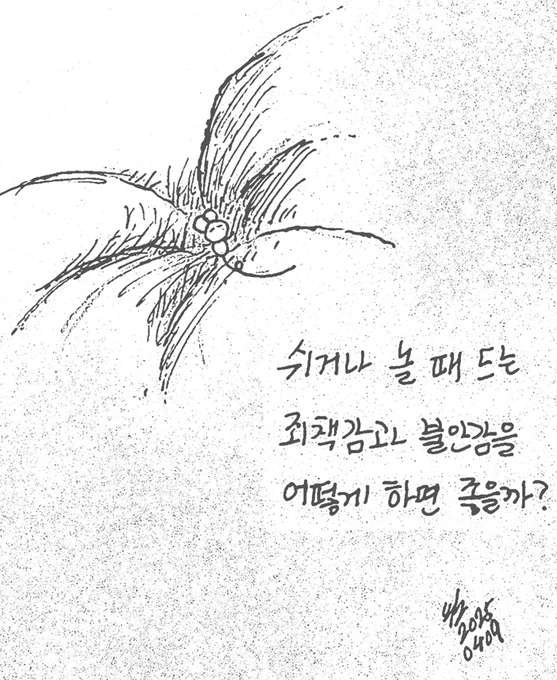 쉬거나 놀 때 드는
죄책감과 불안감을
어떻게 하면 좋을까?
2025
0409